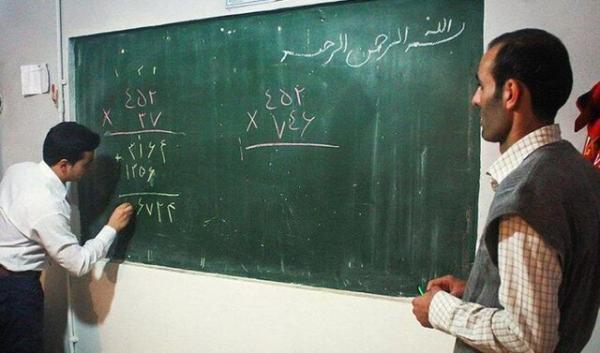 بسم الله الرحمن الرحیم
۴۵۲
× ۳۷
+ ۳۱۶۴
۱۳۵۶
۶۷۲۴
۴۵۲
× ۷۴۶